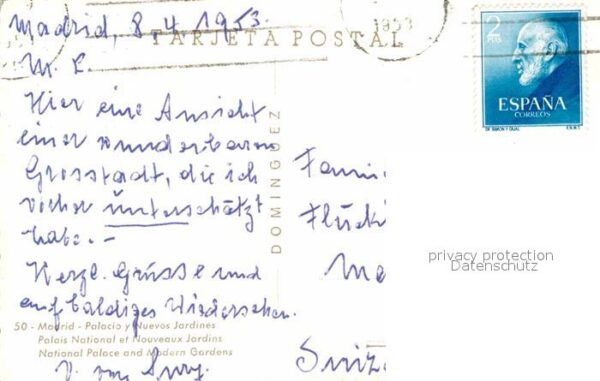 Madrid, 8 4 1953.
1953
TARJETA POSTAL
2
PTAS
ESPAÑA
CORREOS
M. L.
Hier eine Ansicht
einer wunderbaren
Grosstadt, die ich
vorher unterschätzt
habe.-
Herzl. Grüsse und
auf baldiges Wiedersehen.
DOMINGUEZ
Fami
Flücki
privacy protection
Datenschutz
50 - Madrid - Palacio y Nuevos Jardines
Palais National et Nouveaux Jardins
National Palace and Modern Gardens
V. von
Suiz